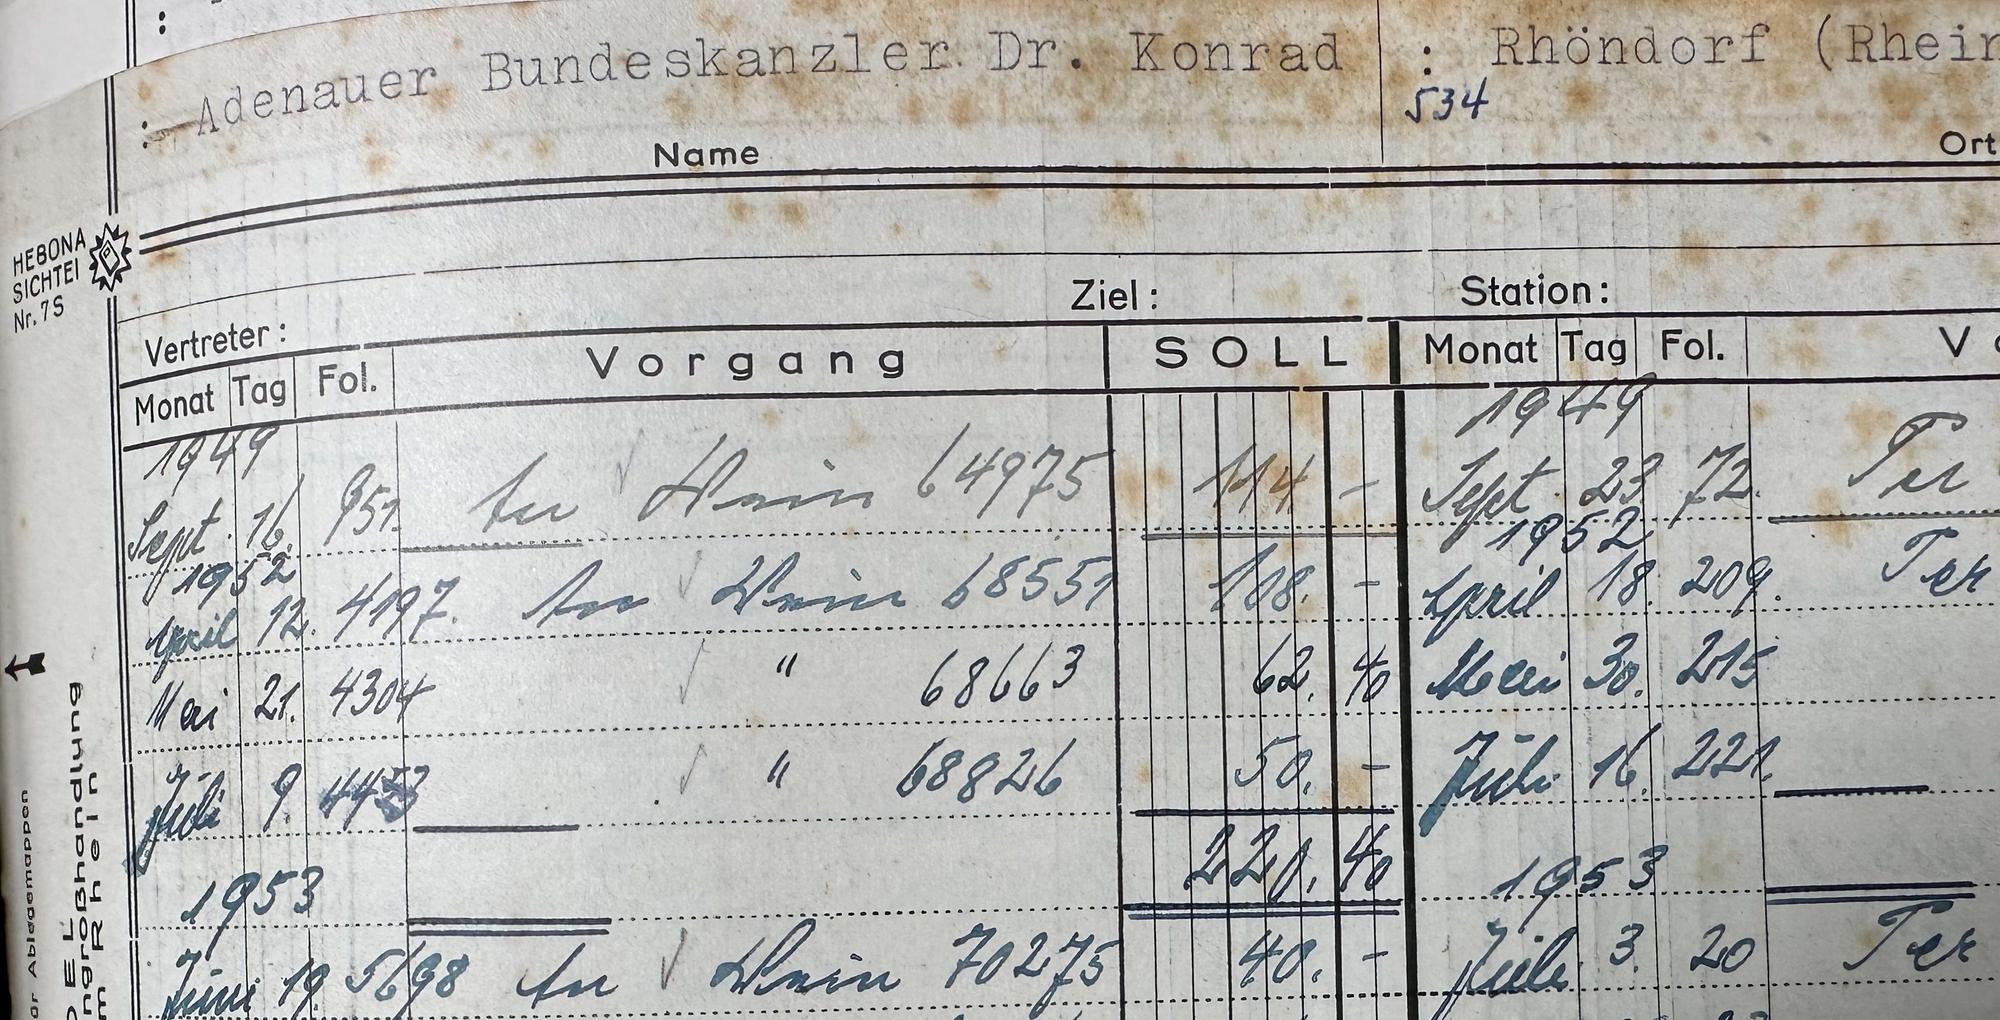 : Adenauer Bundeskanzler Dr. Konrad : Rhöndorf (Rhein
534
Name Ort
HEBONA
SICHTEI
Nr. 7S
Vertreter: Ziel: Station:
Monat Tag Fol. Vorgang SOLL Monat Tag Fol. V
1949 1949
Sept. 16. 951. An Wein 64975 114 - Sept. 23. 72. Per
1952 1952
April 12. 4197. An Wein 68551 108. - April 18. 209. Per
Mai 21. 4304 " 68663 62. 40 Mai 30. 215
Juli 9. 4453 " 68826 50. - Juli 16. 221.
220. 40
1953 1953
Juni 19 5698 An Wein 70275 40. - Juli 3. 20 Per
ngroßhandlung
m Rhein
Ablagemappen